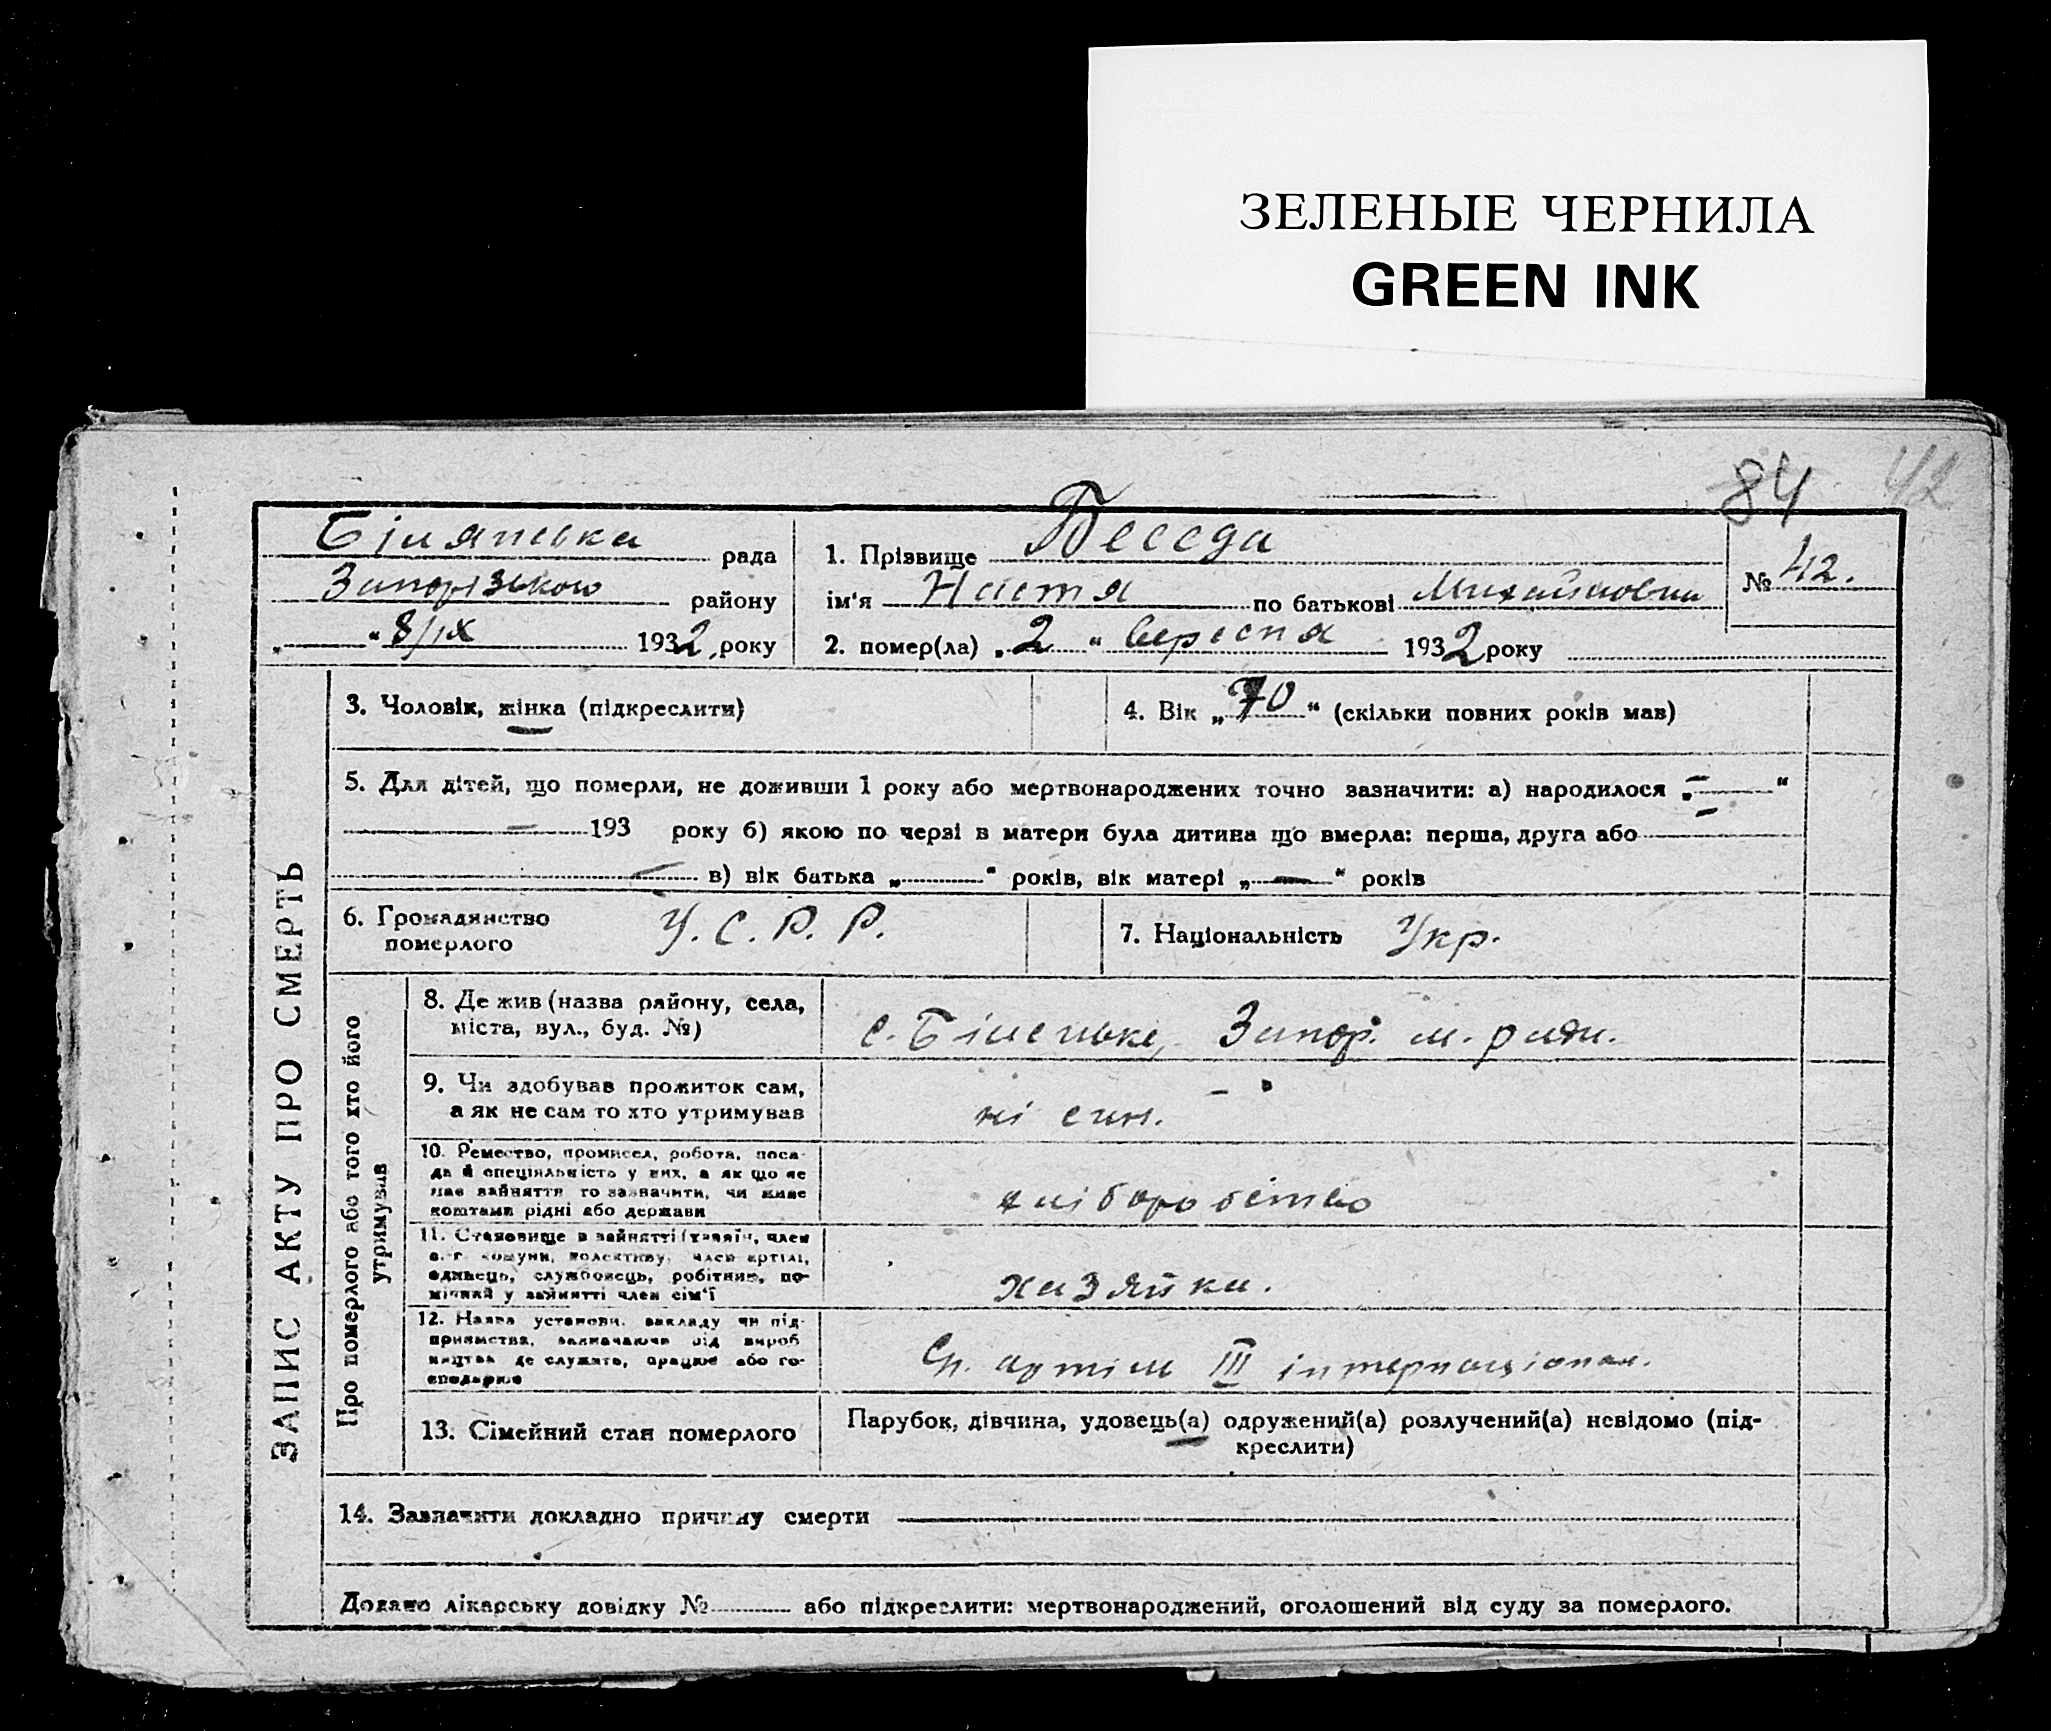 ЗЕЛЕНЫЕ ЧЕРНИЛА
GREEN INK
84 42
Білянська рада
Запорізького району
„ “ 8/IX 1932 року
1. Прізвище Беседа
ім'я Настя по батькові Михайловна
№ 42.
2. помер(ла) „2“ вересня 1932 року
ЗАПИС АКТУ ПРО СМЕРТЬ
3. Чоловік, жінка (підкреслити)
4. Вік „70“ (скільки повних років мав)
5. Для дітей, що померли, не доживши 1 року або мертвонароджених точно зазначити: а) народилося „—“
— 193 року б) якою по черзі в матери була дитина що вмерла: перша, друга або —
— в) вік батька „ “ років, вік матері „—“ років
6. Громадянство
померлого
У. С. Р. Р.
7. Національність Укр.
Про померлого або того хто його
утримував
8. Де жив (назва району, села,
міста, вул., буд. №)
с. Біленьке, Запор. м. ради.
9. Чи здобував прожиток сам,
а як не сам то хто утримував
ні син.
10. Ремество, промисел, робота, поса-
да й спеціяльність у них, а як що не
має зайняття то зазначити, чи живе
коштами рідні або держави
хліборобство
11. Становище в зайнятті (хазяїн, член
с.-г. комуни, колективу, член артілі,
одинець, службовець, робітник, по-
мічний у зайнятті член сім'ї
хазяйка.
12. Назва установи, закладу чи під-
приємства, зазначаючи від вироб
ництва де служить, працює або го-
сподарює
Сп. артіль III інтернаціонал.
13. Сімейний стан померлого
Парубок, дівчина, удовець(а) одружений(а) розлучений(а) невідомо (під-
креслити)
14. Зазначити докладно причину смерти
Додано лікарську довідку № або підкреслити: мертвонароджений, оголошений від суду за померлого.